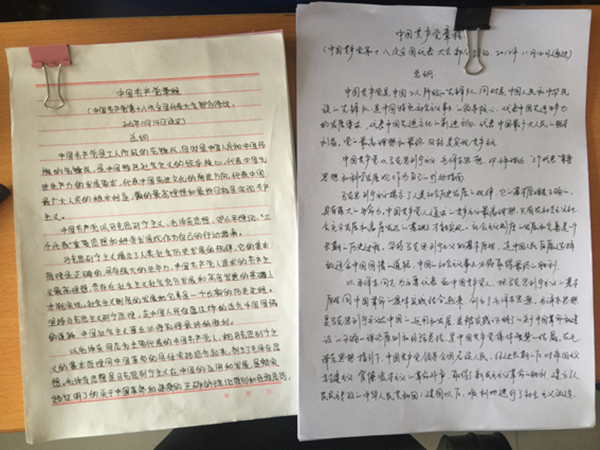 中国共产党章程
(中国共产党第十八次全国代表大会部分修改,
2012年11月14日通过)
总纲
中国共产党是工人阶级的先锋队,同时是中国人民和中华民
族的先锋队,是中国特色社会主义的领导核心,代表中国先
进生产力的发展要求,代表中国先进文化的前进方向,代表中国
最广大人民的根本利益。党的最高理想和最终目标是实现共产
主义。
中国共产党以马克思列宁主义、毛泽东思想、邓小平理论、“三
个代表”重要思想和科学发展观作为自己的行动指南。
马克思列宁主义揭示了人类社会历史发展的规律,它的基本
原理是正确的,具有强大的生命力。中国共产党人追求的共产主
义最高理想,只有在社会主义社会充分发展和高度发达的基础上
才能实现。社会主义制度的发展和完善是一个长期的历史过程。
坚持马克思列宁主义的基本原理,走中国人民自愿选择的适合中国国情
的道路,中国社会主义事业必将取得最终的胜利。
以毛泽东同志为主要代表的中国共产党人,把马克思列宁主
义的基本原理同中国革命的具体实践结合起来,创立了毛泽东思
想。毛泽东思想是马克思列宁主义在中国的运用和发展,是被实
践证明了的关于中国革命和建设的正确的理论原则和经验总结,
年 月 日
中国共产党章程
(中国共产党第十八次全国代表大会部分修改,2012年11月14日通过)
总纲
中国共产党是中国工人阶级的先锋队,同时是中国人民和中华民
族的先锋队,是中国特色社会主义事业的领导核心,代表中国先进生产力
的发展要求,代表中国先进文化的前进方向,代表中国最广大人民的根本
利益。党的最高理想和最终目标是实现共产主义。
中国共产党以马克思列宁主义、毛泽东思想、邓小平理论、“三个代表”重要
思想和科学发展观作为自己的行动指南。
马克思列宁主义揭示了人类社会历史发展的规律,它的基本原理是正确的,
具有强大的生命力。中国共产党人追求的共产主义最高理想,只有在社会主义社
会充分发展和高度发达的基础上才能实现。社会主义制度的发展和完善是一个
长期的历史过程。坚持马克思列宁主义的基本原理,走中国人民自愿选择
的适合中国国情的道路,中国的社会主义事业必将取得最终的胜利。
以毛泽东同志为主要代表的中国共产党人,把马克思列宁主义的基本
原理同中国革命的具体实践结合起来,创立了毛泽东思想。毛泽东思想
是马克思列宁主义在中国的运用和发展,是被实践证明了的关于中国革命和建
设的正确的理论原则和经验总结,是中国共产党集体智慧的结晶。在毛
泽东思想指引下,中国共产党领导全国各族人民,经过长期的反对帝国主义、
封建主义、官僚资本主义的革命斗争,取得了新民主主义革命的胜利,建立了人
民民主专政的中华人民共和国;建国以后,顺利地进行了社会主义改造,